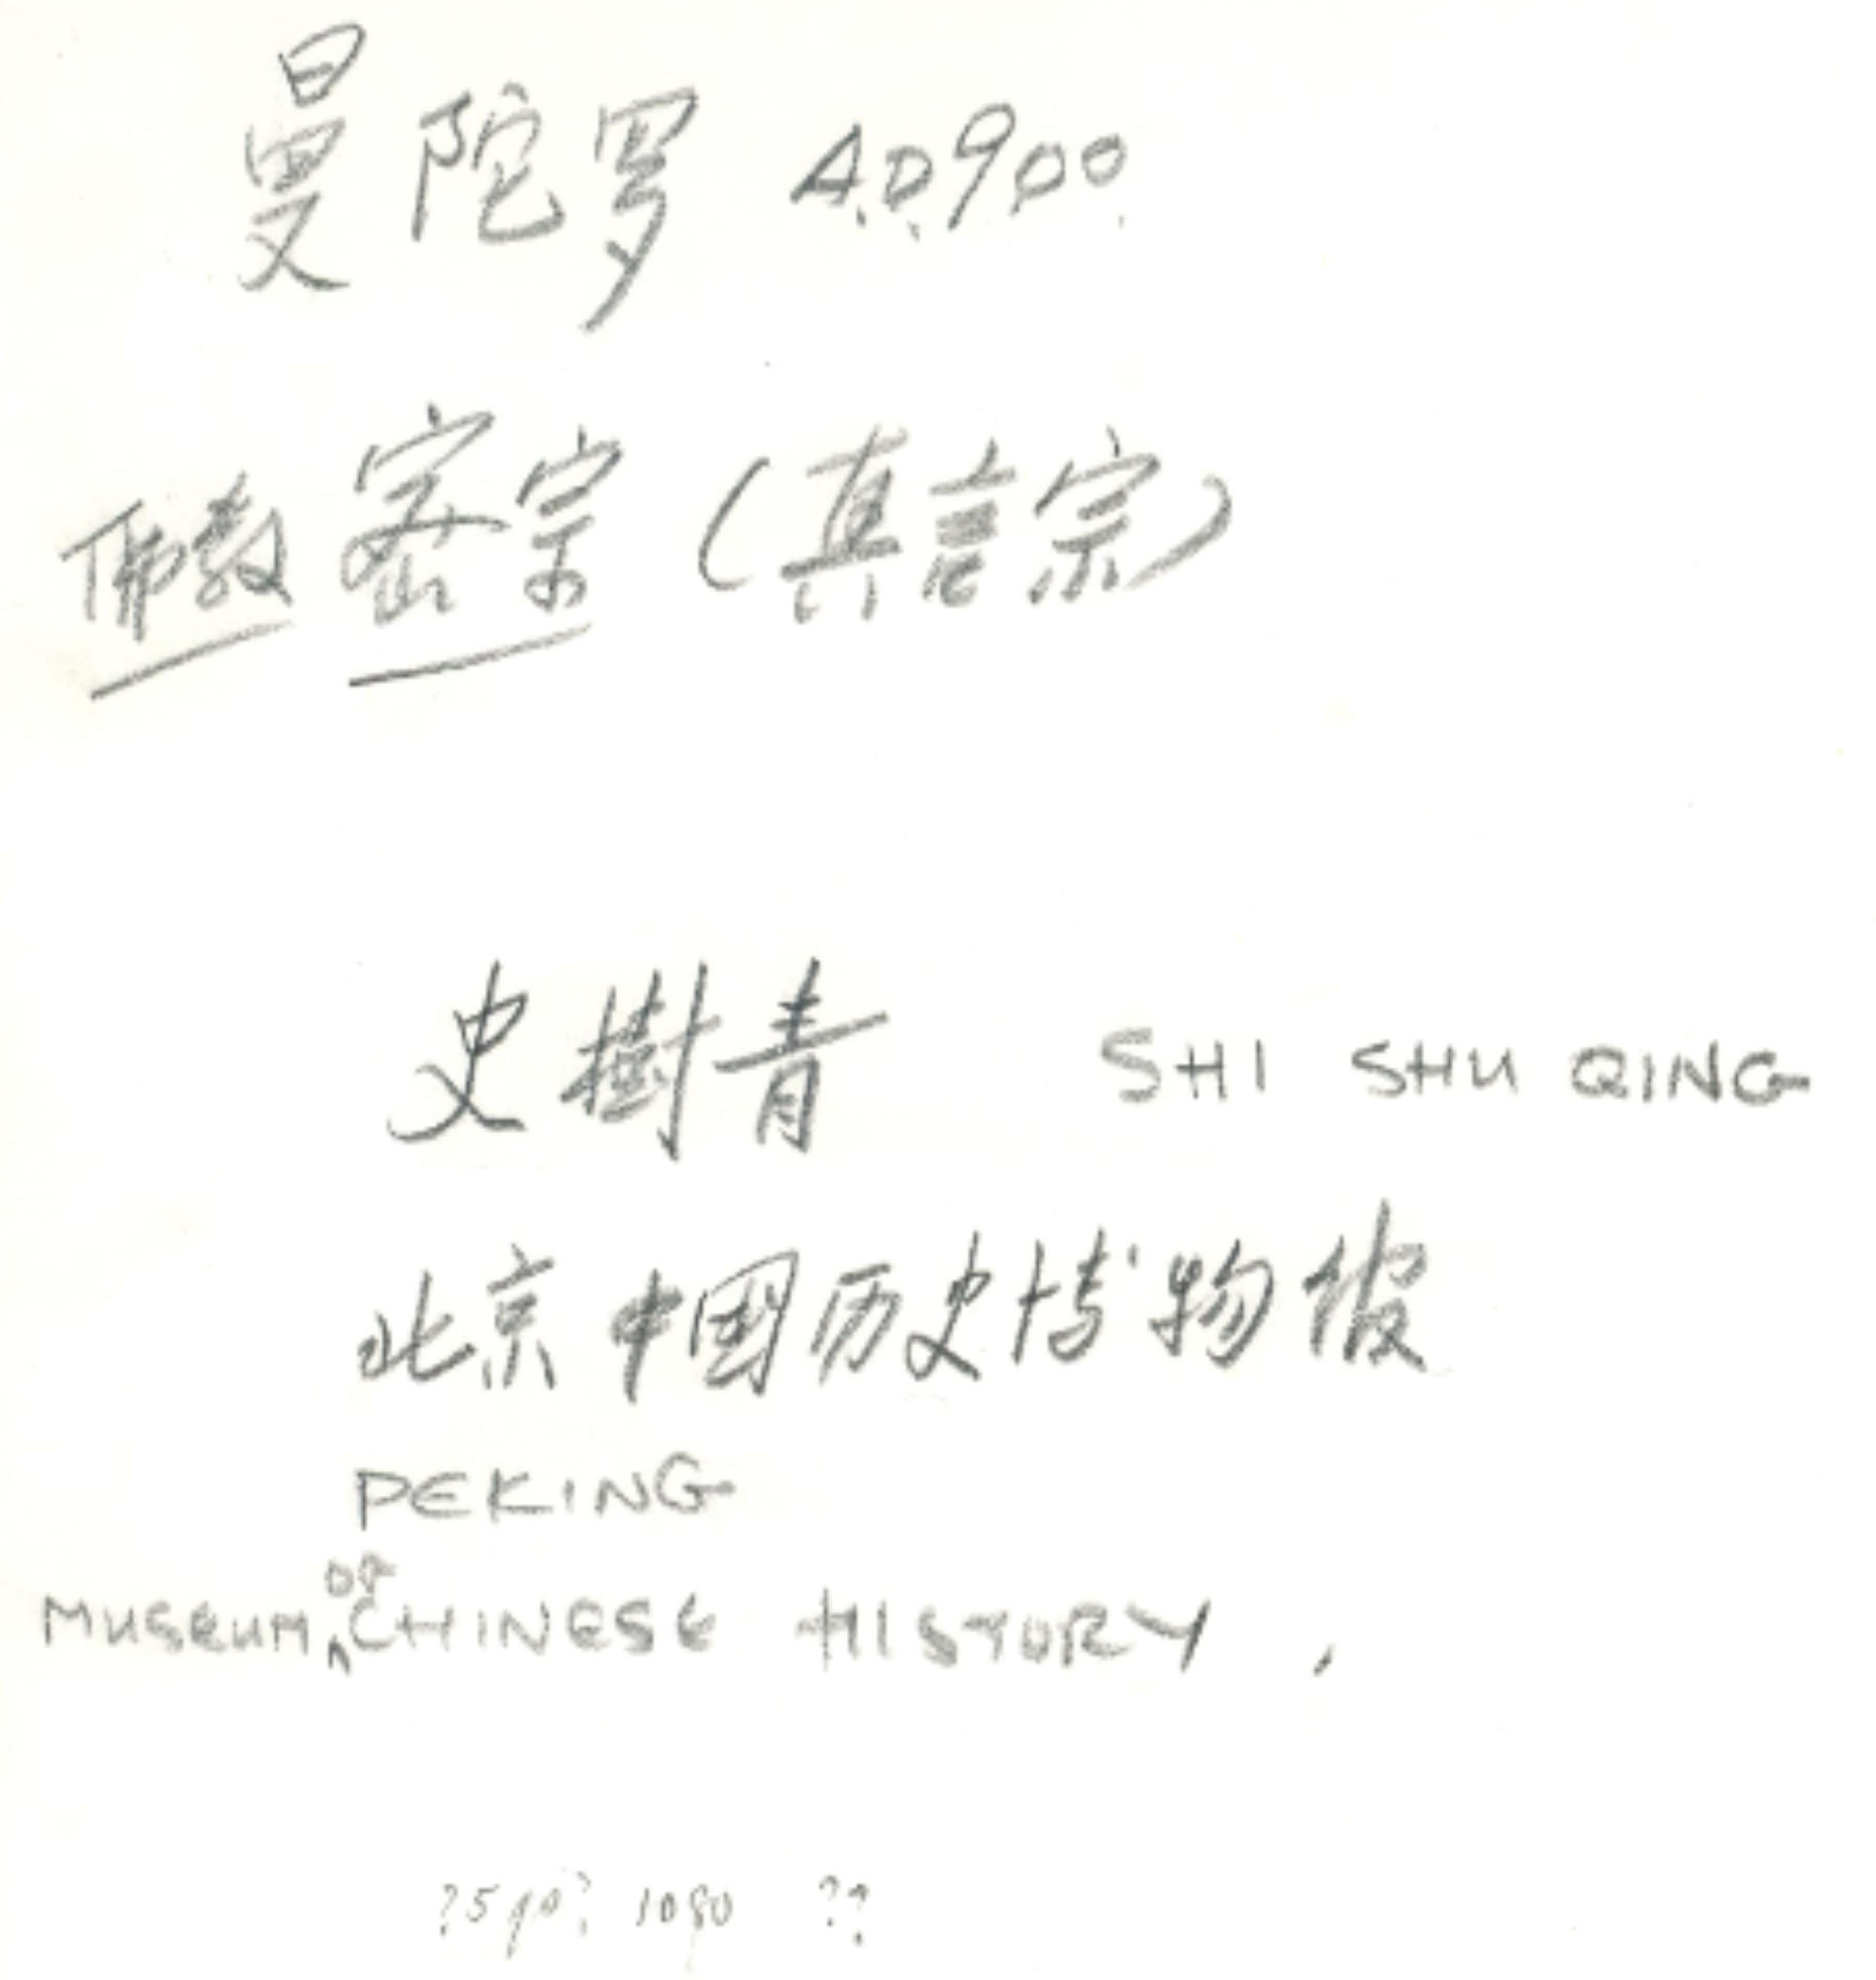 曼陀罗 A.D.900.
佛教密宗(真言宗)
史樹青 SHI SHU QING
北京中國历史博物馆
PEKING
MUSEUM OF CHINESE HISTORY,
1080 ??